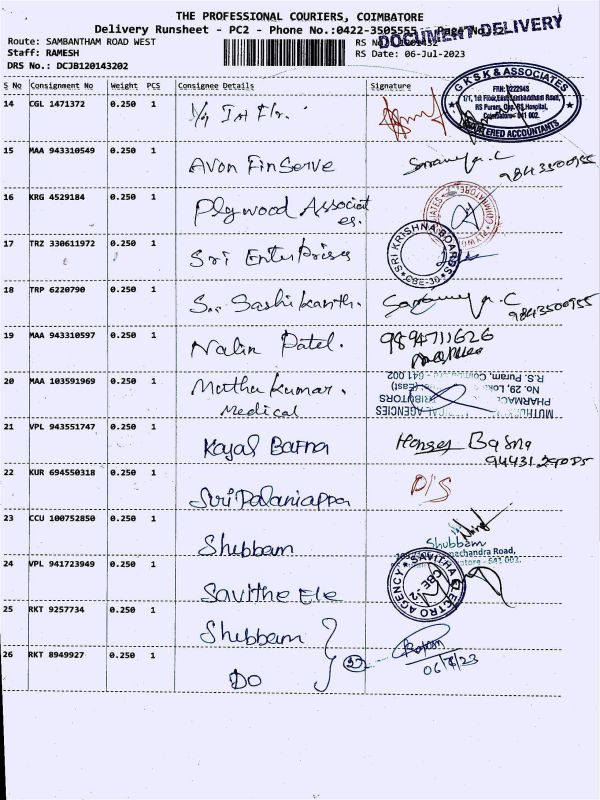 THE PROFESSIONAL COURIERS, COIMBATORE
Delivery Runsheet - PC2 - Phone No.:0422-3505555
DOCUMENT DELIVERY
Route: SAMBANTHAM ROAD WEST
Staff: RAMESH RS Date: 06-Jul-2023
DRS No.: DCJB120143202
S No Consignment No Weight PCS Consignee Details Signature
G K S K & ASSOCIATES
FRN:
1/1, 1st Floor, East
RS Puram, Opp. RS Hospital,
Coimbatore- 641 002.
CHARTERED ACCOUNTANTS
14 CGL 1471372 0.250 1
15 MAA 943310549 0.250 1 Avon FinServe 9843500955
16 KRG 4529184 0.250 1 Plywood Associat
es.
17 TRZ 330611972 0.250 1 Sri Enterprises
SRI KRISHNA BOARDS
CBE-30
18 TRP 6220790 0.250 1 Sashikanth. 9843500955
19 MAA 943310597 0.250 1 Nalin Patel. 9894711626
20 MAA 103591969 0.250 1 Muthu Kumar.
Medical
MUTHU AGENCIES
No. 29,
(East)
R.S. Puram, 641 002
21 VPL 943551747 0.250 1 Kayal Bafna
22 KUR 694550318 0.250 1 Sri Palaniappa D/S
23 CCU 100752850 0.250 1 Shubbam Shubbam
Road,
641 002.
24 VPL 941723949 0.250 1 Savithe Ele
SAVITHA ELECTRO AGENCY
CBE-12
25 RKT 9257734 0.250 1 Shubbam
26 RKT 8949927 0.250 1 Do